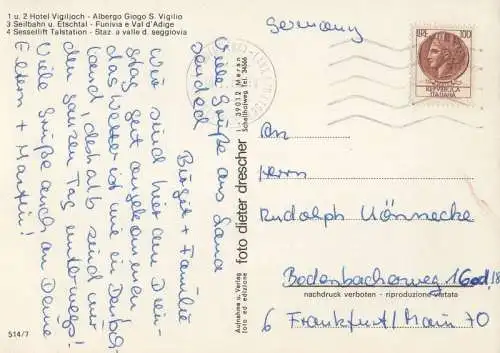 1 u. 2 Hotel Vigiljoch - Albergo Giogo S. Vigilio
3 Seilbahn u. Etschtal - Funivia e Val d'Adige
4 Sessellift Talstation - Staz. a valle d. seggiovia
Wir sind hier am Dien-
stag gut angekommen
das Wetter ist wie in Deutsch-
land, deshalb sind wir
den ganzen Tag unterwegs!
Viele Grüße auch an Deine
Eltern + Martin!
Viele Grüße aus Lana
sendet
Birgit + Familie
514/7
Aufnahme u. Verlag
foto ed edizione
foto dieter drescher
I - 39012 Meran
Schallhofweg Tel. 34566
Germany
LIRE 100
REPVBBLICA
ITALIANA
An
Herrn
Rudolph Könnecke
Bodenbacherweg
nachdruck verboten - riproduzione vietata
6 Frankfurt/Main 70